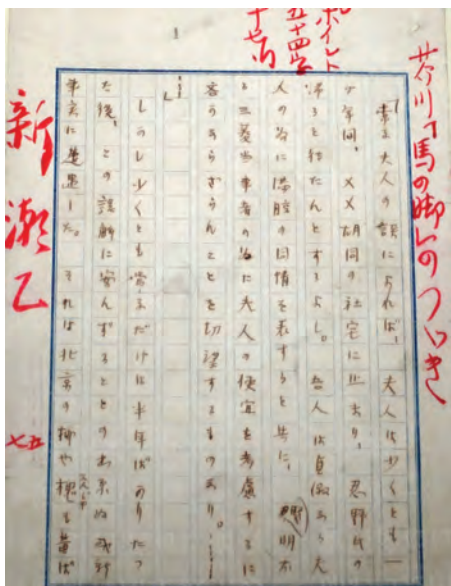 芥川「馬の脚」のつゞき
ポイント
五十四字
十七行
1
「常子夫人の談によれば、夫人は少くとも一
ケ年間、××胡同の社宅に止まり、忍野氏の
帰るを待たんとするよし。吾人は貞淑なる夫
人の為に満腔の同情を表すると共に、賢明な
る三菱当事者の為に夫人の便宜を考慮するに
吝かならざらんことを切望するものなり。……
…」
しかし少くとも常子だけは半年ばかりたつ
た後、この誤解に安んずることの出来ぬ或新
事実に遭遇した。それは北京の柳や槐も黄ば
新潮乙
七五